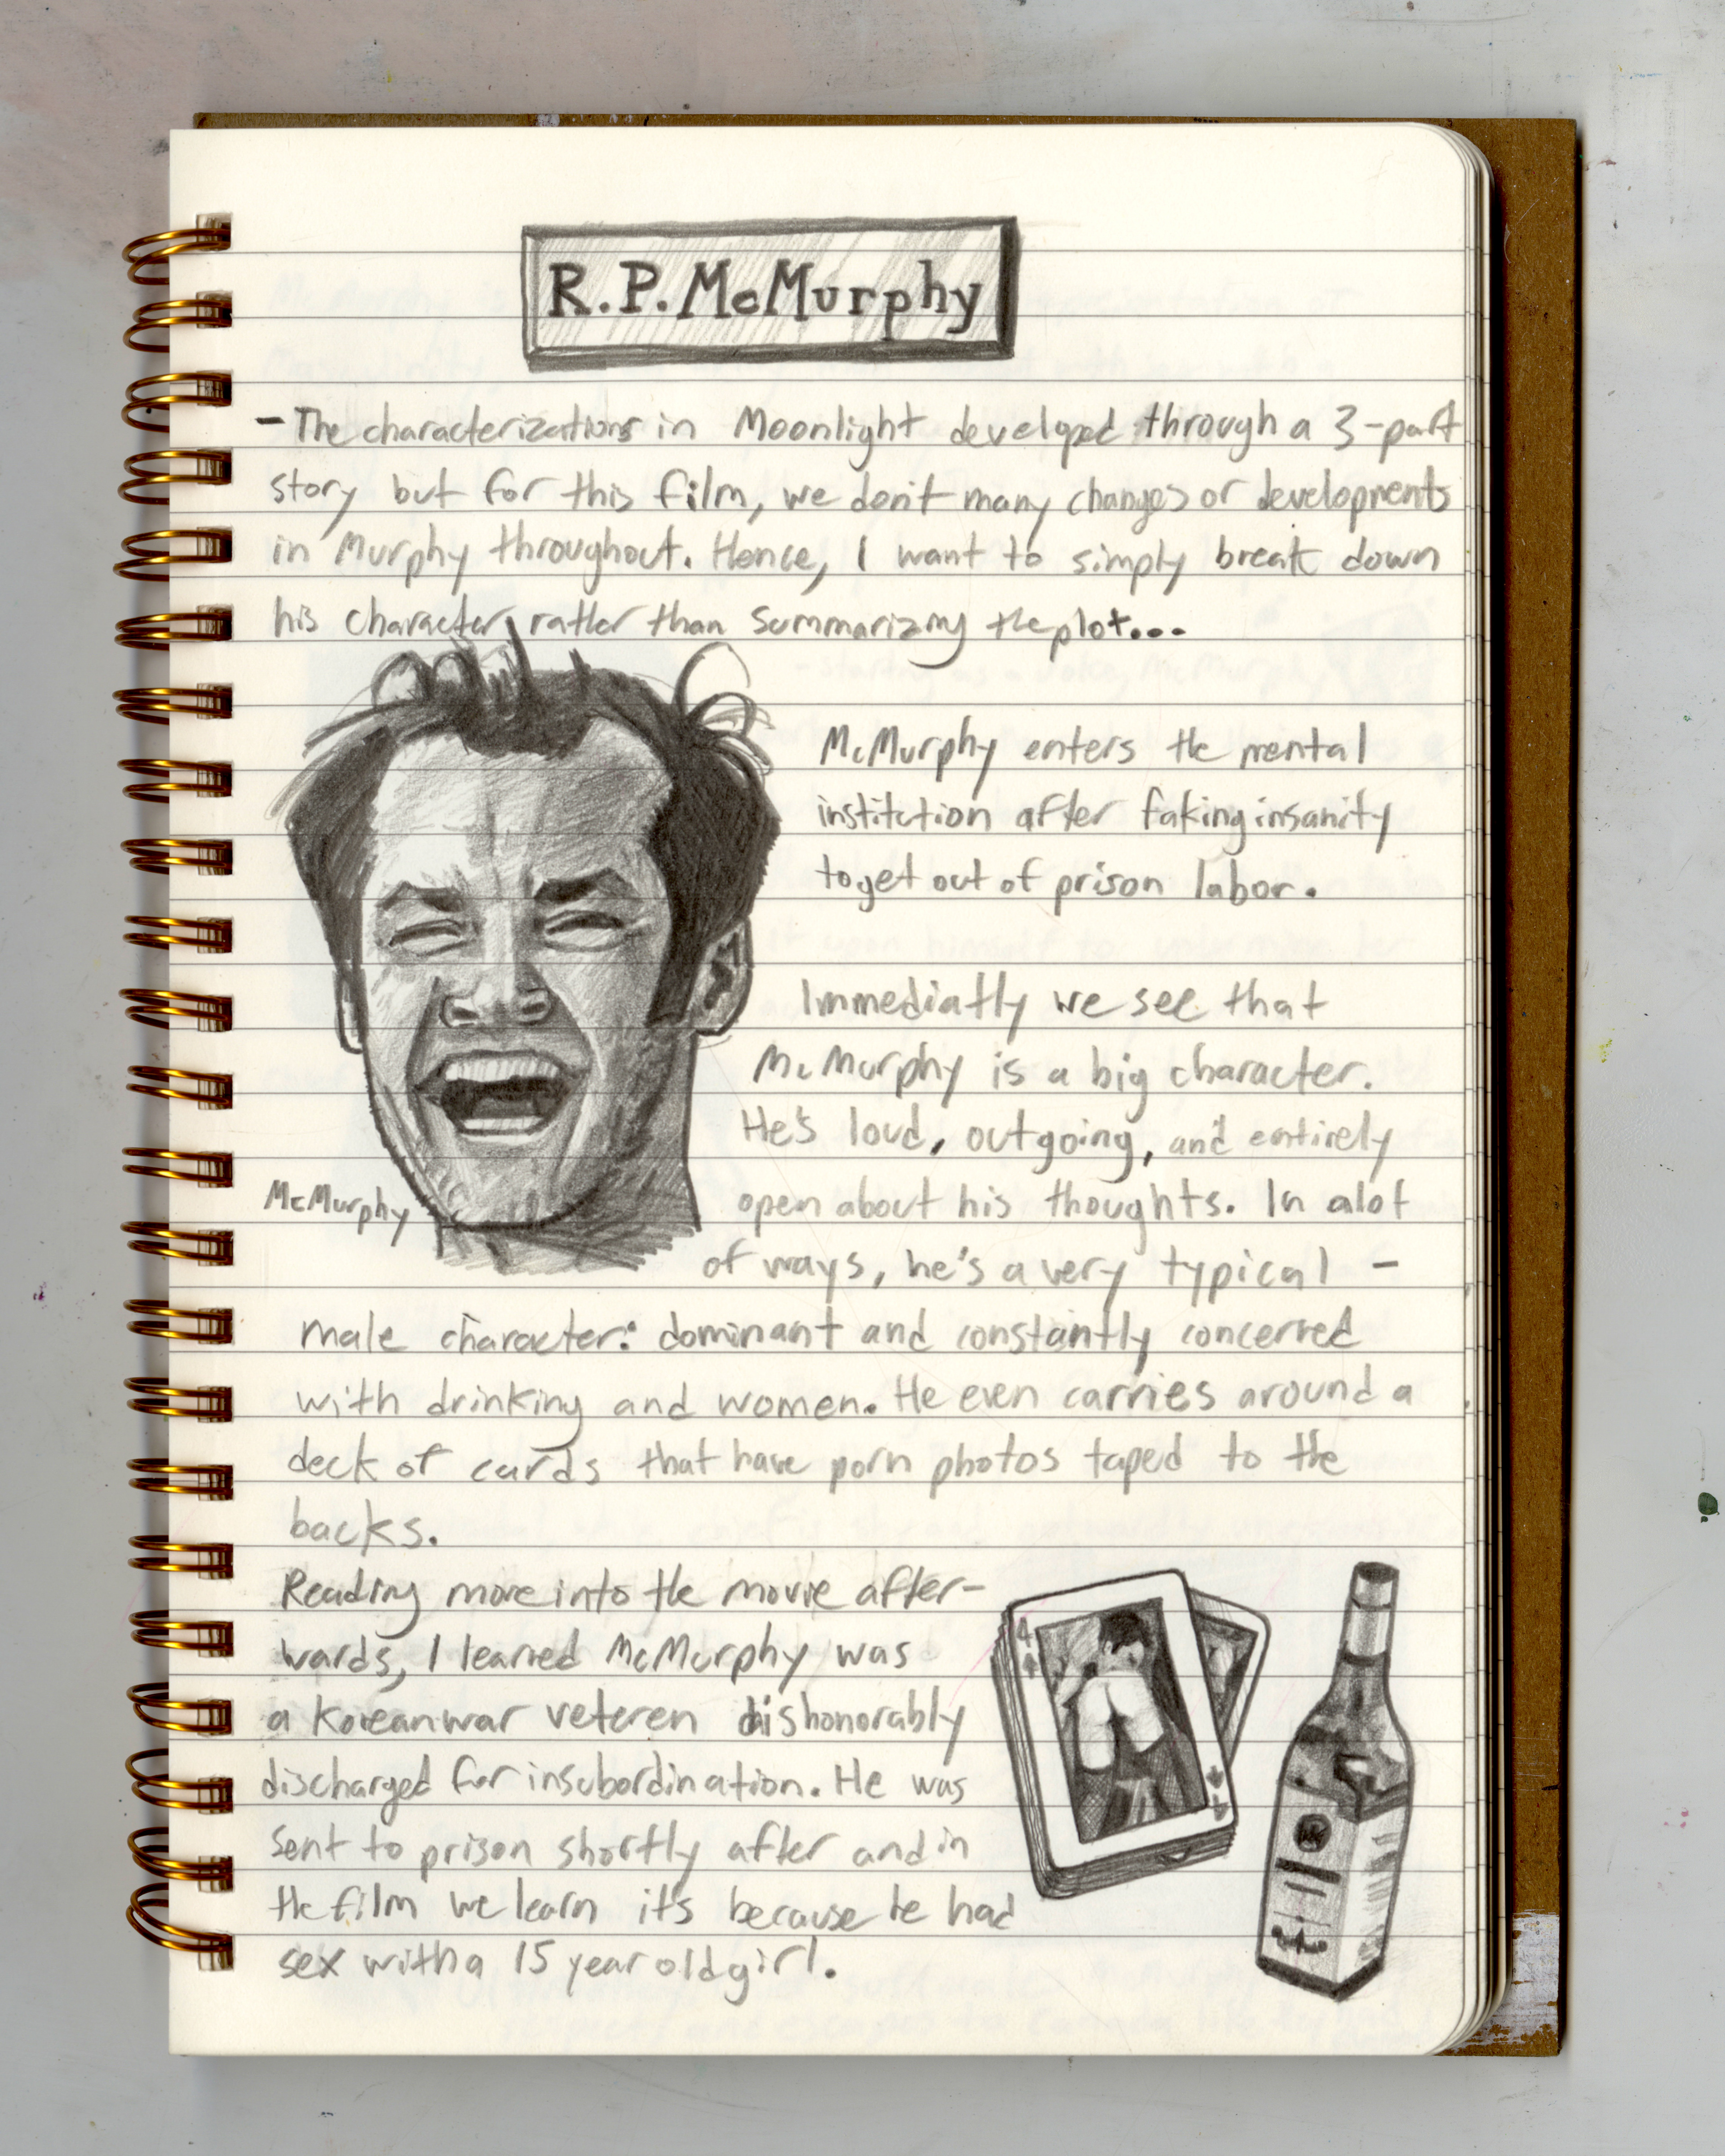 R.P. McMurphy
- The characterizations in Moonlight developed through a 3-part
story but for this film, we don't many changes or developments
in Murphy throughout. Hence, I want to simply break down
his character, rather than summarizing the plot...
McMurphy enters the mental
institution after faking insanity
to get out of prison labor.
Immediatly we see that
McMurphy is a big character.
He's loud, outgoing, and entirely
McMurphy
open about his thoughts. In alot
of ways, he's a very typical -
male character: dominant and constantly concerned
with drinking and women. He even carries around a
deck of cards that have porn photos taped to the
backs.
Reading more into the movie after-
wards, I learned McMurphy was
a Korean war veteren dishonorably
discharged for insubordination. He was
sent to prison shortly after and in
the film we learn it's because he had
sex with a 15 year old girl.
4
4